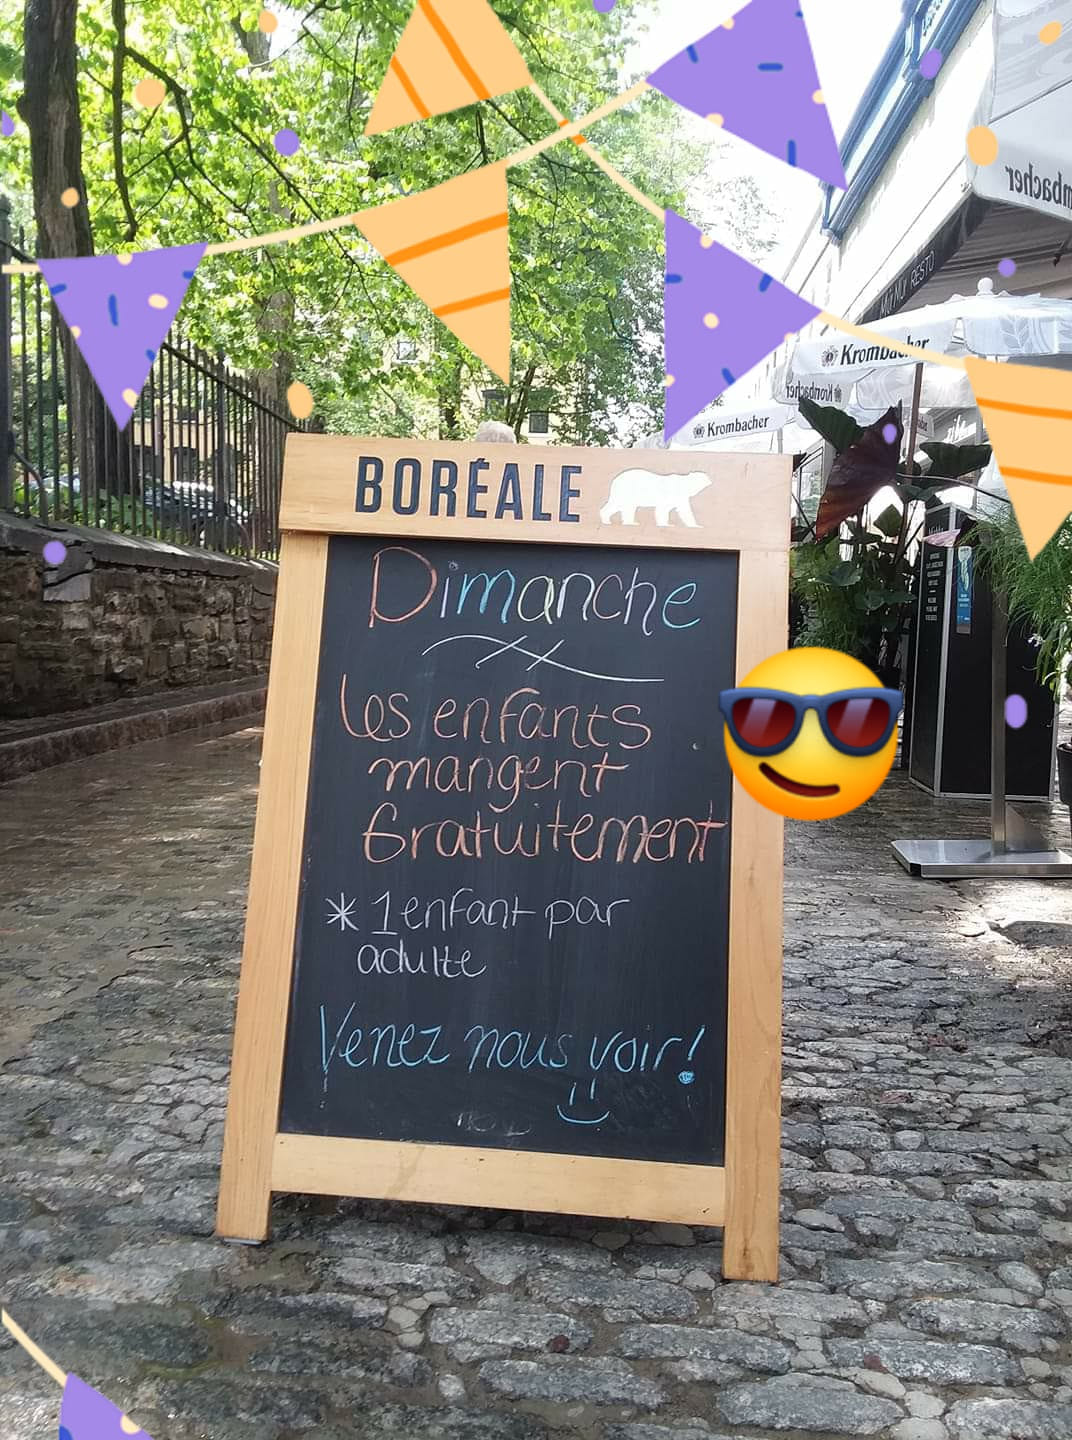 mbacher
MYNLY RESTO
Krombacher
Krombacher
Krombacher
BORÉALE
Dimanche
Les enfants
mangent
Gratuitement
* 1 enfant par
adulte
Venez nous voir!